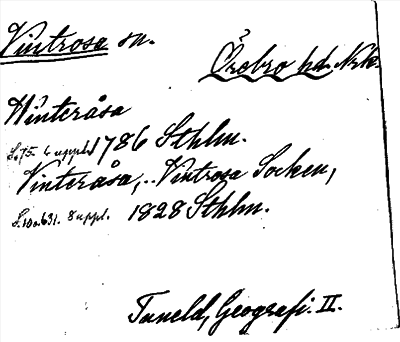 Vintrosa sn.
Örebro hd. Nrk.
Winteråsa
S. 75. 6 uppl. 1786 Sthlm.
Vinteråsa, .. Vintrosa Socken,
S. 100. 631. 8 uppl. 1828 Sthlm.
Tuneld, Geografi. II.